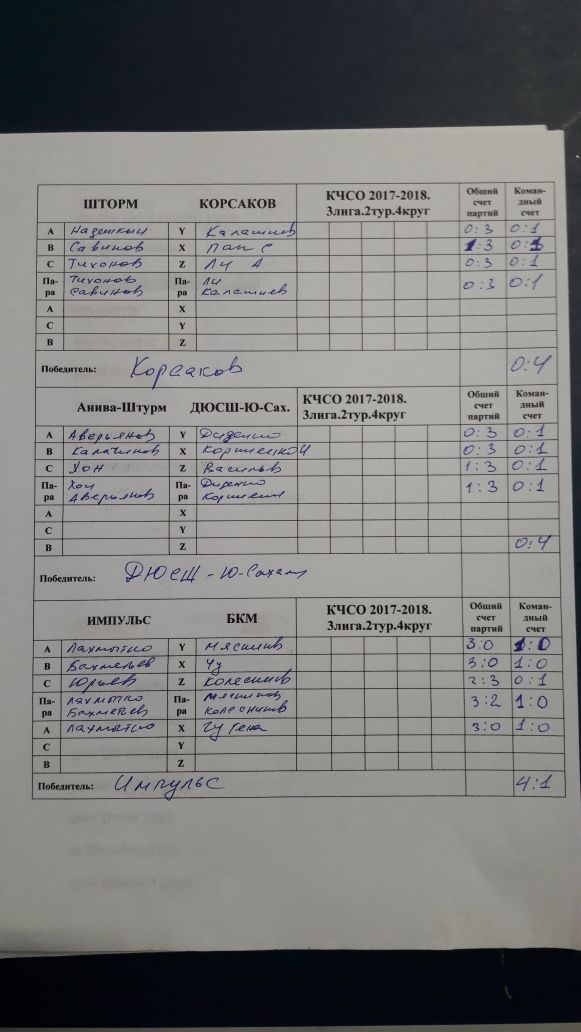 ШТОРМ КОРСАКОВ КЧСО 2017-2018. 3лига.2тур.4круг Общий счет партий Коман-дный счет
А Надеткын Y Калашнев 0:3 0:1
В Савинов X Пан С 1:3 0:1
С Тихонов Z Ли А 0:3 0:1
Па-ра Тихонов Савинов Па-ра Ли Калашнев 0:3 0:1
А X
С Y
В Z
Победитель: Корсаков 0:4
Анива-Штурм ДЮСШ-Ю-Сах. КЧСО 2017-2018. 3лига.2тур.4круг Общий счет партий Коман-дный счет
А Аверьянов Y Диденко 0:3 0:1
В Калашнов X 0:3 0:1
С Хон Z Васильв 1:3 0:1
Па-ра Хон Аверьянов Па-ра Диденко 1:3 0:1
А X
С Y
В Z 0:4
Победитель: ДЮСШ-Ю-Сахал
ИМПУЛЬС БКМ КЧСО 2017-2018. 3лига.2тур.4круг Общий счет партий Коман-дный счет
А Лахмытко Y Мясников 3:0 1:0
В Бахметьев X Чу 3:0 1:0
С Юрьев Z Колесников 2:3 0:1
Па-ра Лахмытко Бахметьев Па-ра Мясников Колесников 3:2 1:0
А Лахмытко X Чу Гена 3:0 1:0
С Y
В Z
Победитель: Импульс 4:1